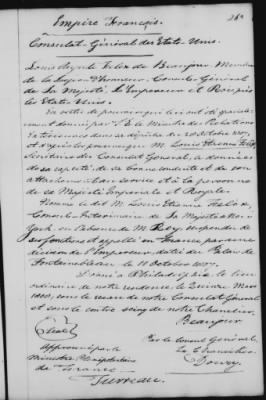 Empire Français.
Consulat Général des Etats-Unis.
Louis Auguste Felix de Beaujour, Membre
de la Légion d'Honneur, Consul Général
de Sa Majesté l'Empereur et Roi près
les Etats Unis.
En vertu du pouvoir qui
donné par S. E. le Ministre des Relations
Extérieures dans sa dépêche du 20 Octobre 1807,
et d'après les preuves que M. Louis Etienne Felix,
du Consulat Général, a données
de sa capacité, de sa bonne conduite et de son
attachement au service et à la personne
de sa Majesté Impériale et Royale
Nommé le dit M. Louis Etienne Felix
Consul Intérimaire de Sa Majesté à New
York en l'absence de M. Rey, suspendu de
ses fonctions et appelé en France par une
décision de l'Empereur, datée du Palais de
Fontainebleau le 11 Octobre 1807.
Donné à Philadelphie, le lieu
ordinaire de notre residence le Quinze Mars
1808, sous le sceau de notre Consulat Général
et sous le contre seing de notre Chancelier.
Beaujour
(Seal)
Par le Consul Général,
Le Chancelier
Approuvé par le
Ministre Plenipotentiaire
de France
Turreau.